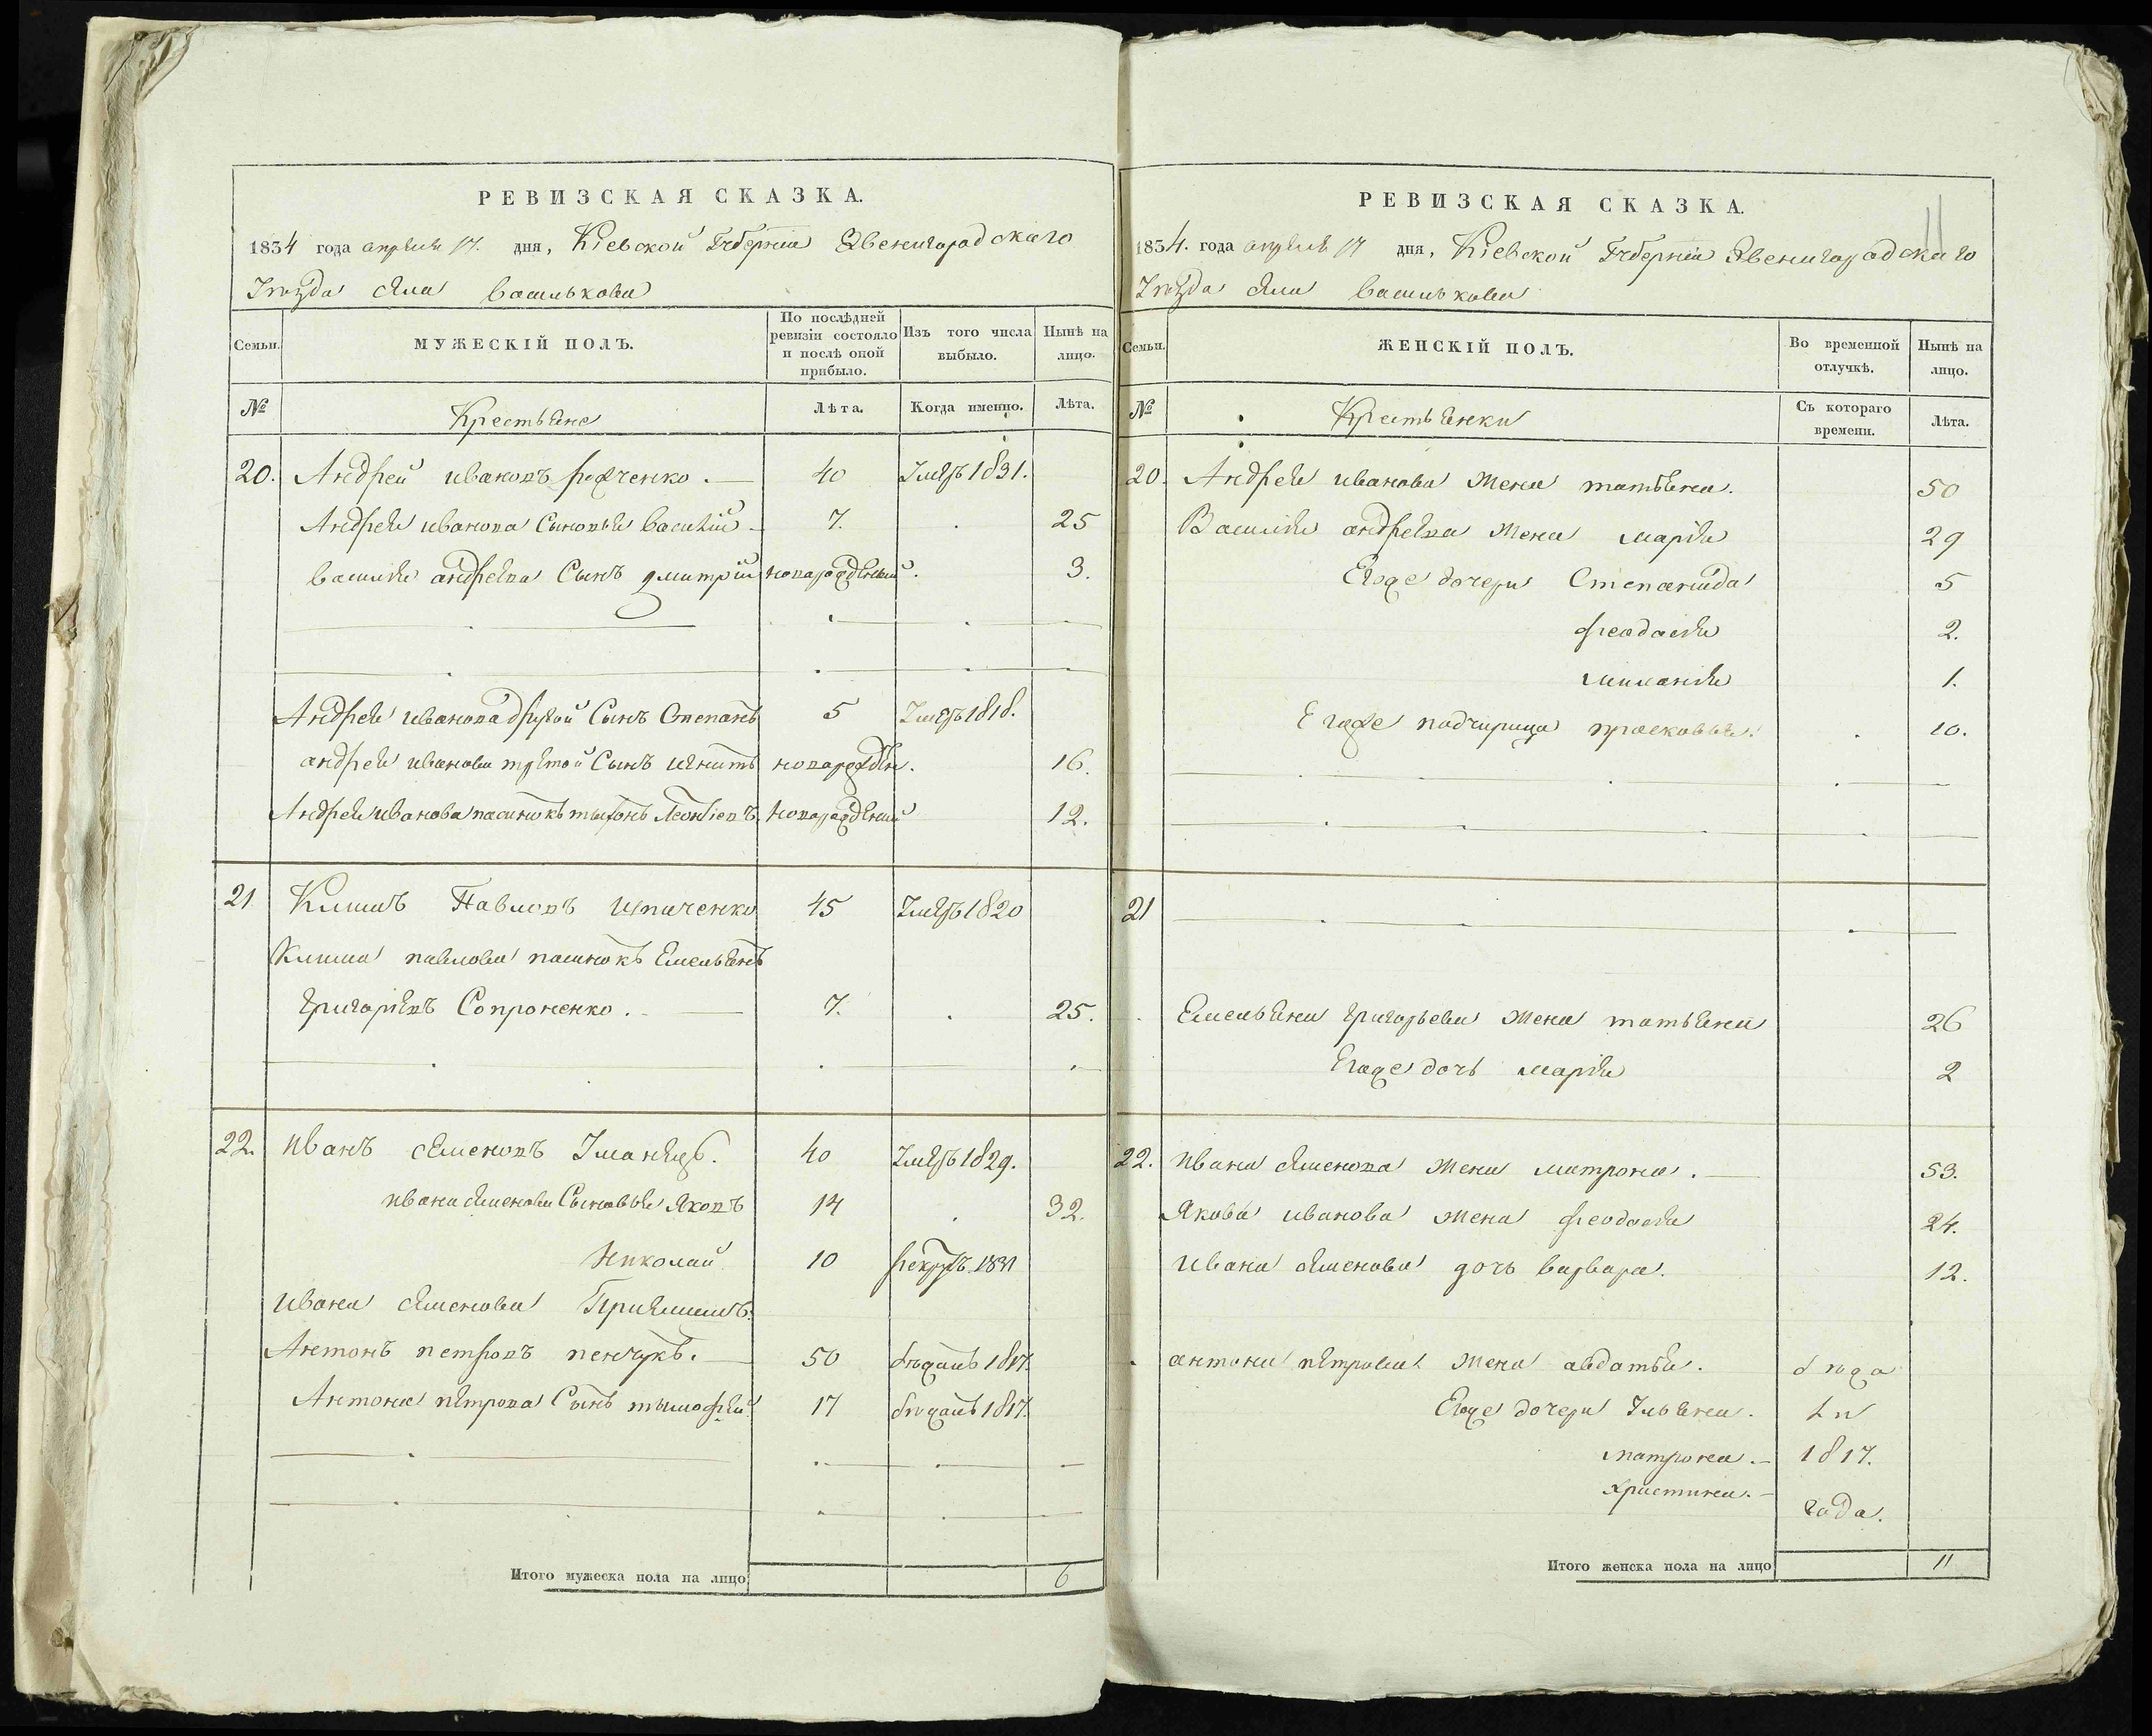 РЕВИЗСКАЯ СКАЗКА.
1834 года апреля 17. дня, Кіевской Губерніи Звенигородскаго
Уезда села Василькова
Семьи.
МУЖЕСКІЙ ПОЛЪ.
По послѣдней ревизіи состояло и послѣ оной прибыло.
Изъ того числа выбыло.
Нынѣ на лицо.
№ Крестьяне Лѣта. Когда именно. Лѣта.
20. Андрей Ивановъ 40 Умеръ 1831.
Андрея Иванова Сыновья Василій 7. 25
Василія Андреева Сынъ Дмитрій новорожденный. 3.
Андрея Иванова другой Сынъ Степанъ 5 Умеръ 1818.
Андрея Иванова третой Сынъ новорожден. 16.
Андрея Иванова пасинокъ Леонтіевъ новорожденный 12.
21 Климъ Павловъ 45 Умеръ 1820
Клима Павлова пасинокъ Емельянъ
Григоріевъ Сопроненко. 7. 25.
22. Иванъ Семеновъ 40 Умеръ 1829.
Ивана Семенова Сыновья Яковъ 14 32.
Николай 10 рекрутъ 1831
Ивана Семенова
Антонъ Петровъ 50 бежалъ 1817.
Антона Петрова Сынъ Тымофей 17 бежалъ 1817.
Итого мужеска пола на лицо 6
РЕВИЗСКАЯ СКАЗКА.
11
1834. года апреля 17 дня, Кіевской Губерніи Звенигородскаго
Уезда села Василькова
Семьи.
ЖЕНСКІЙ ПОЛЪ.
Во временной отлучкѣ.
Нынѣ на лицо.
№ Крестьянки Съ котораго времени. Лѣта.
20. Андрея Иванова Жена Татьяна. 50
Василія Андреева Жена Марія 29
Егоже дочери Степанида 5
Феодосія 2.
Миланія 1.
Егоже падчирица Прасковья. 10.
21
Емельяна Григорьева Жена Татьяна 26
Егоже дочь Марія 2
22. Ивана Семенова Жена Матрона. 53.
Якова Иванова Жена Феодосія 24.
Ивана Семенова дочь Варвара. 12.
Антона Петрова Жена Авдотья.
Егоже дочери Ульяна.
Матрона. 1817.
Христина. года.
Итого женска пола на лицо 11